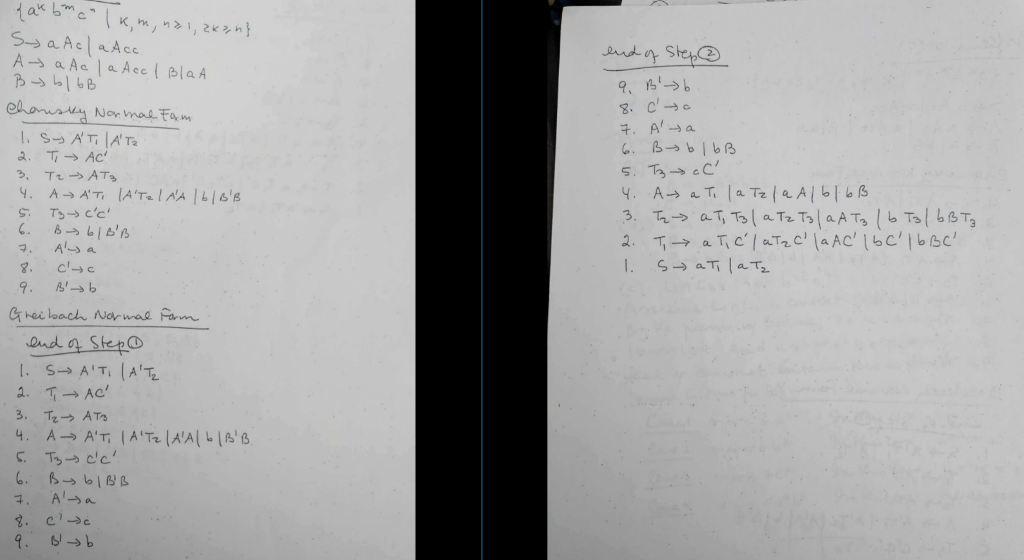 {aᵏ bᵐ cⁿ | K, m, n ≥ 1, 2K ≥ n}
S → aAc | aAcc
A → aAc | aAcc | B | aA
B → b | bB
Chomsky Normal Form
1. S → A'T₁ | A'T₂
2. T₁ → AC'
3. T₂ → AT₃
4. A → A'T₁ | A'T₂ | A'A | b | B'B
5. T₃ → C'C'
6. B → b | B'B
7. A' → a
8. C' → c
9. B' → b
Greibach Normal Form
end of Step ①
1. S → A'T₁ | A'T₂
2. T₁ → AC'
3. T₂ → AT₃
4. A → A'T₁ | A'T₂ | A'A | b | B'B
5. T₃ → C'C'
6. B → b | B'B
7. A' → a
8. C' → c
9. B' → b
end of Step ②
9. B' → b
8. C' → c
7. A' → a
6. B → b | bB
5. T₃ → cC'
4. A → aT₁ | aT₂ | aA | b | bB
3. T₂ → aT₁T₃ | aT₂T₃ | aAT₃ | bT₃ | bBT₃
2. T₁ → aT₁C' | aT₂C' | aAC' | bC' | bBC'
1. S → aT₁ | aT₂